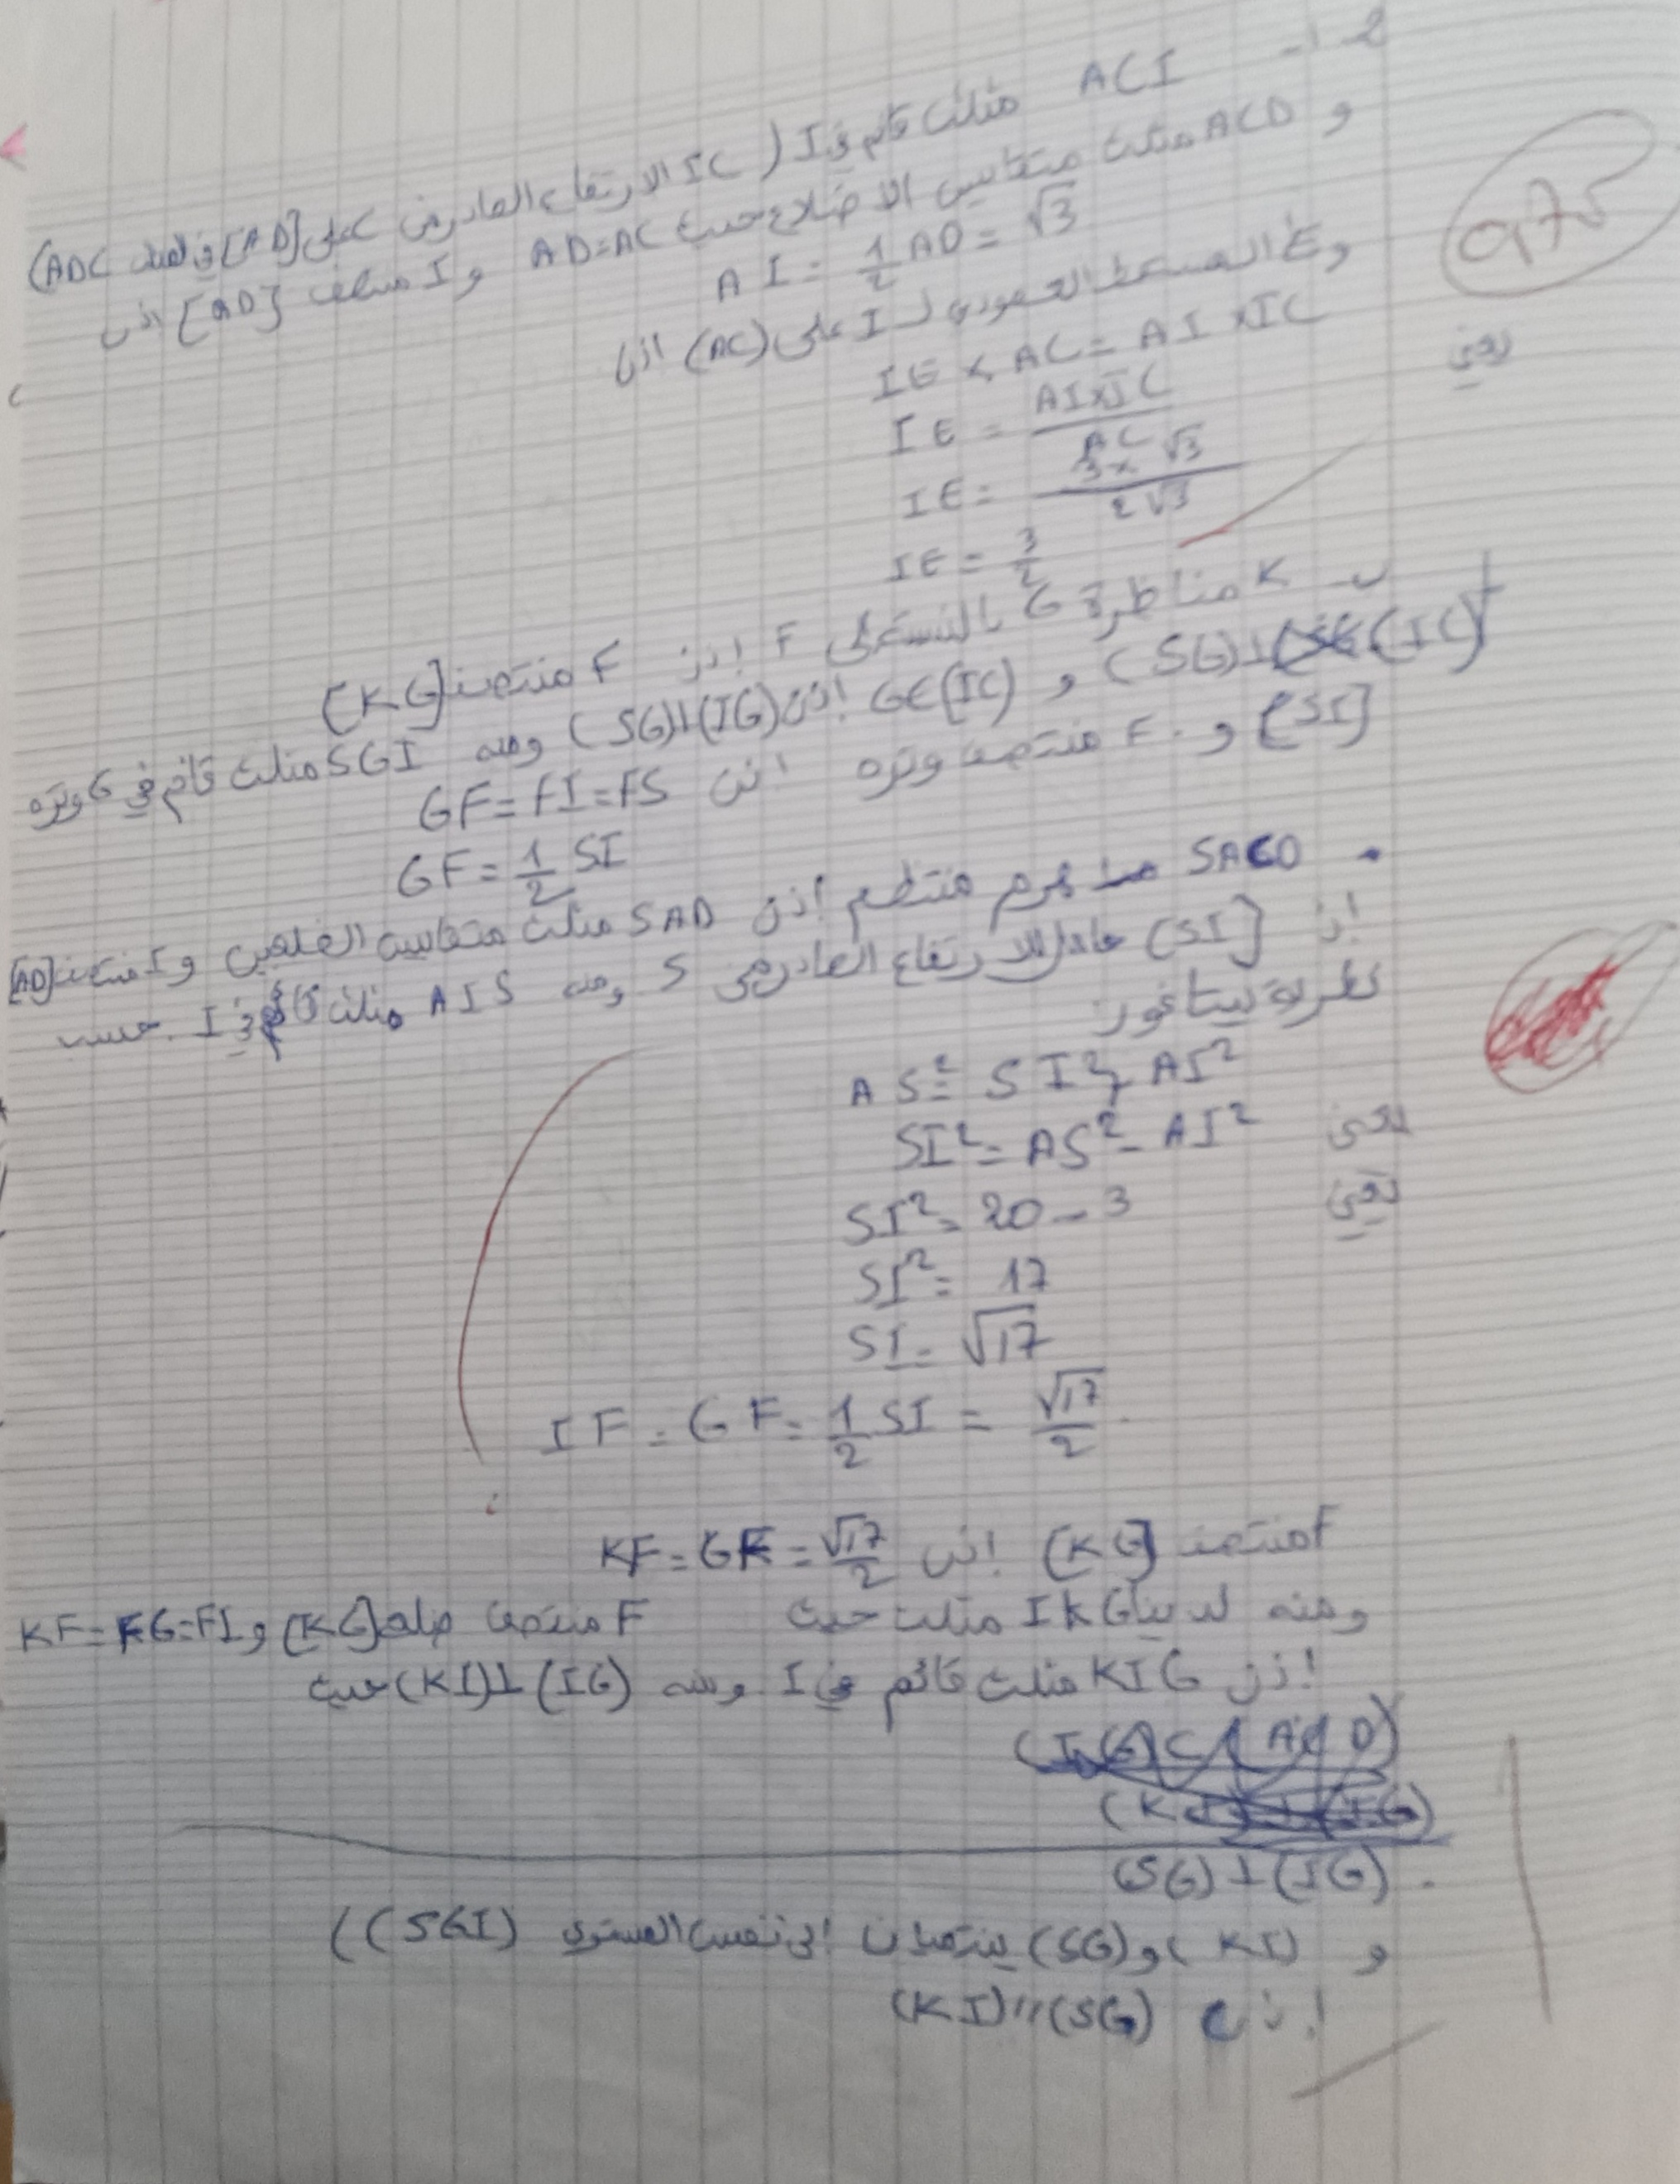 2 - ا-
ACI مثلث قائم في I (IC الارتفاع الصادر من C على [AD] في المثلث ADC)
و ACD مثلث متقايس الاضلاع حيث AD=AC و I منتصف [AD] اذن
AI = 1/2 AD = √3
0,75
و E المسقط العمودي لـ I على (AC) اذن
IE × AC = AI × IC
يعني IE = AI×IC / AC
IE = 3×√3 / 2√3
IE = 3/2
ب - K مناظرة G بالنسبة إلى F إذن F منتصف [KG]
(SG)⊥(IC) و G∈(IC) إذن (SG)⊥(IG) ومنه SGI مثلث قائم في G وتره
[SI] و F منتصف وتره اذن GF=FI=FS
GF = 1/2 SI
• SACD هرم منتظم إذن SAD مثلث متقايس الضلعين و I منتصف [AD]
إذن [SI] حامل للارتفاع الصادر من S ومنه AIS مثلث قائم في I. حسب
نظرية بيتاغور
AS² = SI² + AI²
يعني SI² = AS² - AI²
يعني SI² = 20 - 3
SI² = 17
SI = √17
IF = GF = 1/2 SI = √17/2
F منتصف [KG] إذن KF = GF = √17/2
ومنه لدينا IKG مثلث حيث F منتصف ضلعه [KG] و KF=FG=FI
إذن KIG مثلث قائم في I ومنه (IG)⊥(KI) حيث
(SG)⊥(IG) .
و (KI) و (SG) ينتميان إلى نفس المستوي ((SGI)
إذن (KI)//(SG)